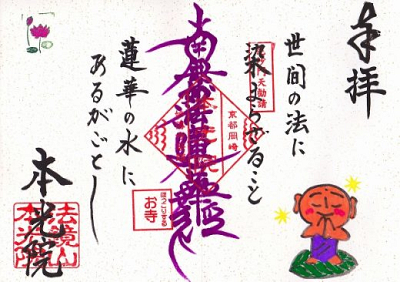 奉拝
世間の法に
染まらざること
京都岡崎
南無妙法蓮華経
蓮華の水に
あるがごとし
ほっこりする
お寺
本光院
法鏡山
本光院